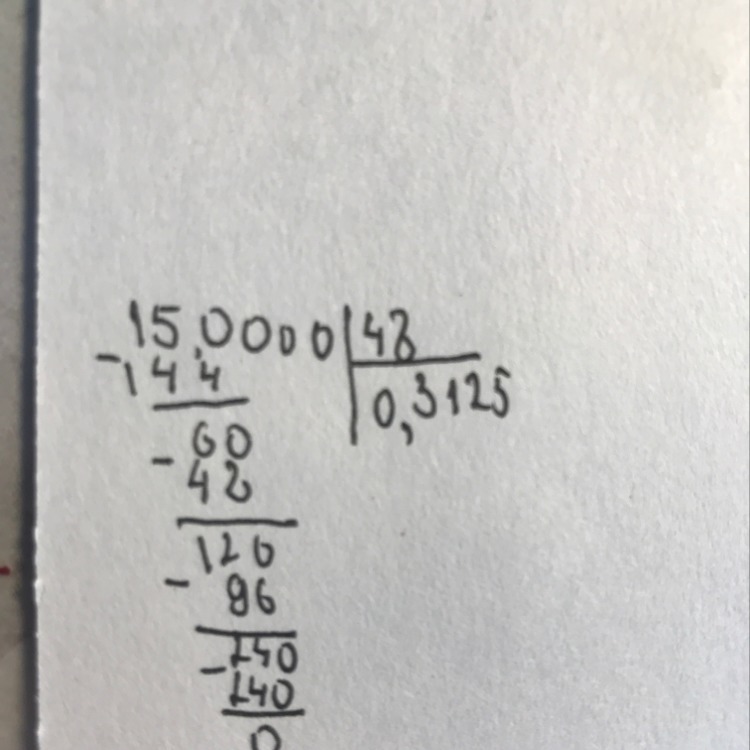 15,0000 | 48
- 144
0,3125
- 60
48
120
- 96
240
- 240
0